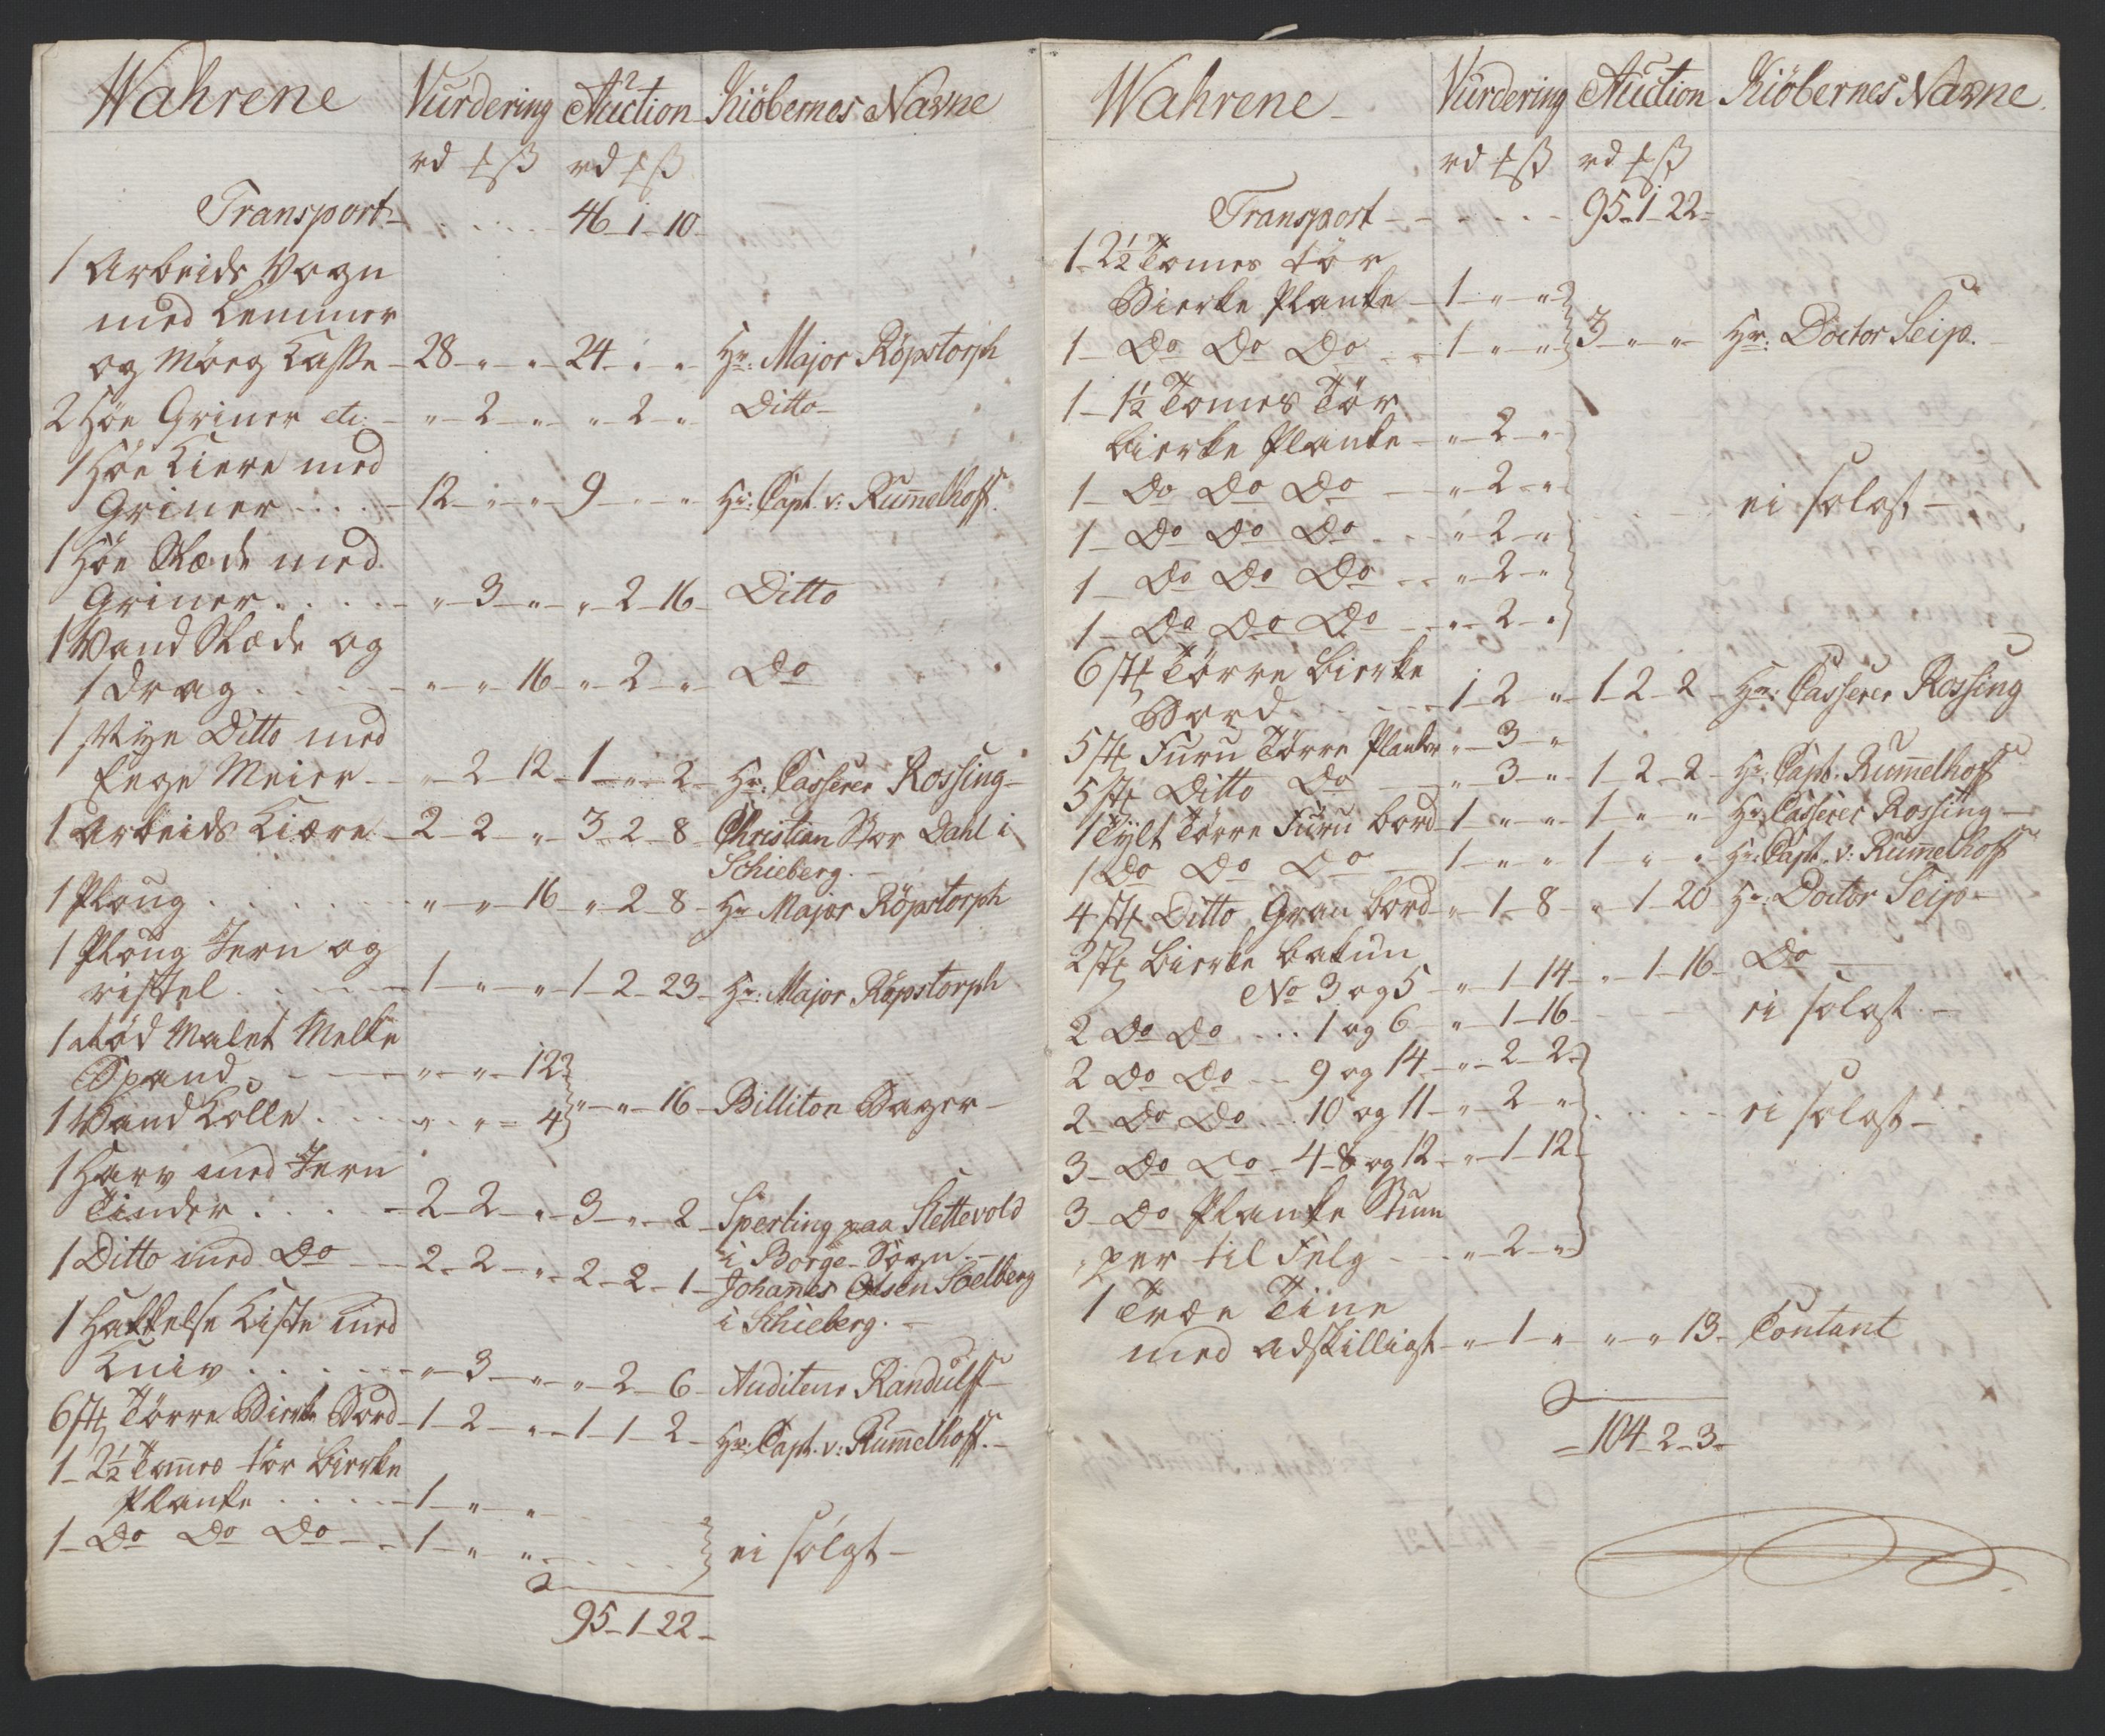 Wahrene Vurdering Auction Kiöbernes Navne
rd ß rd ß
Transport 46 - 1 - 10
1 Arbeids Vogn
med Lemmer
og Mörg Kasse - 28 - " - " - 24 - " - " Hr: Major Röpstorph
2 Höe Griner etc: - " - 2 - " " - 2 - " Ditto
1 Höe Kiere med
Griner - 12 - " - " - 9 - " - " Hr: Capt. v: Rum̅elhoff.
1 Höe Slæde med
Griner - " - 3 - " - " - 2 - 16 - Ditto
1 Vand Slæde og
1 Drag - " - " 16 - " - 2 - " Do
1 Nye Ditto med
Ege Meier - " - 2 - 12 - 1 - " - 2 - Hr: Casserer Rossing
1 Arbeids Kiære - 2 - 2 - " - 3 - 2 - 8 - Christian Stor Dahl i
Schieberg.
1 Ploug - " - " 16 - " - 2 - 8 - Hr Major Röpstorph
1 Ploug Jern og
ristel - 1 - " - " 1 - 2 - 23 - Hr: Major Röpstorph
1 Röd Malet Melke
Spand - " - " - 12
1 Vand Kolle - " - " - 4 " - " - 16 - Billiton Bager
1 Harv med Jern
Tinder - 2 - 2 - " - 3 - " - 2 - Sperling paa Slettevold
i Borge Sogn.
1 Ditto med Do - 2 - 2 - " - 2 - 2 - 1 - Johan̅es Olsen Soelberg
i Schieberg.
1 Hakkelse Kiste med
Kniv - " - 3 - " - " - 2 - 6 - Auditeur Randulff
6 st Törre Birke Bord - 1 - 2 - " - 1 - 1 - 2 - Hr: Capt. v: Rum̅elhoff.
1 - 2½ Tom̅es tör Bierke
Planke - 1 - " - "
1 - Do Do Do - 1 - " - " ei solgt
95 - 1 - 22
Wahrene Vurdering Auction Kiöbernes Navne
rd ß rd ß
Transport 95 - 1 - 22
1 - 2½ Tomes tör
Bierke Planke - 1 - " - "
1 - Do Do Do - 1 - " - " 3 - " - " Hr: Doctor Seip.
1 - 1½ Tomes Tör
Bierke Planke - " - 2 - "
1 - Do Do Do - " - 2 - " ei solgt
1 - Do Do Do - " - 2 - "
1 - Do Do Do - " - 2 - "
1 - Do Do Do - " - 2 - "
6 st Törre Bierke
Bord - 1 - 2 " - 1 - 2 - 2 - Hr: Casserer Rossing
5 st Furu Törre Planker " - 3 - "
5 st Ditto Do - " - 3 - " - 1 - 2 - 2 - Hr: Capt. Rum̅elhoff
1 Tylt Törre Furu Bord - 1 - " - " 1 - " - " Hr Casserer Rossing
1 Do Do Do - 1 - " - " 1 - " - " Hr: Capt. v: Rum̅elhoff
4 st Ditto Gran Bord - " - 1 - 8 - " - 1 - 20 Hr: Doctor Seip
2 st Bierke Bakun
No 3 og 5 - " - 1 - 14 - " - 1 - 16 - Do
2 Do Do 1 og 6 - " - 1 - 16 - ei solgt
2 Do Do - 9 og 14 - " - 2 - 2
2 - Do Do 10 og 11 - " - 2 - " ei solgt
3 - Do Do - 4 - 8 og 12 - " - 1 - 12
3 - Do Planke Stum
per til Felg - " - 2 - "
1 Træe Tine
med adskilligt - " - 1 - " " - " 13 - Contant
104 - 2 - 3